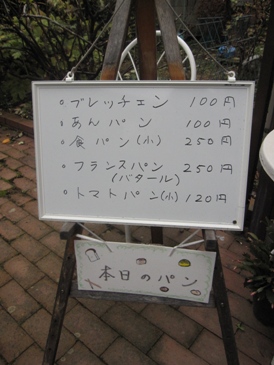 ○ブレッチェン 100円
○あんパン 100円
○食パン(小) 250円
○フランスパン 250円
(バタール)
○トマトパン(小) 120円
本日のパン